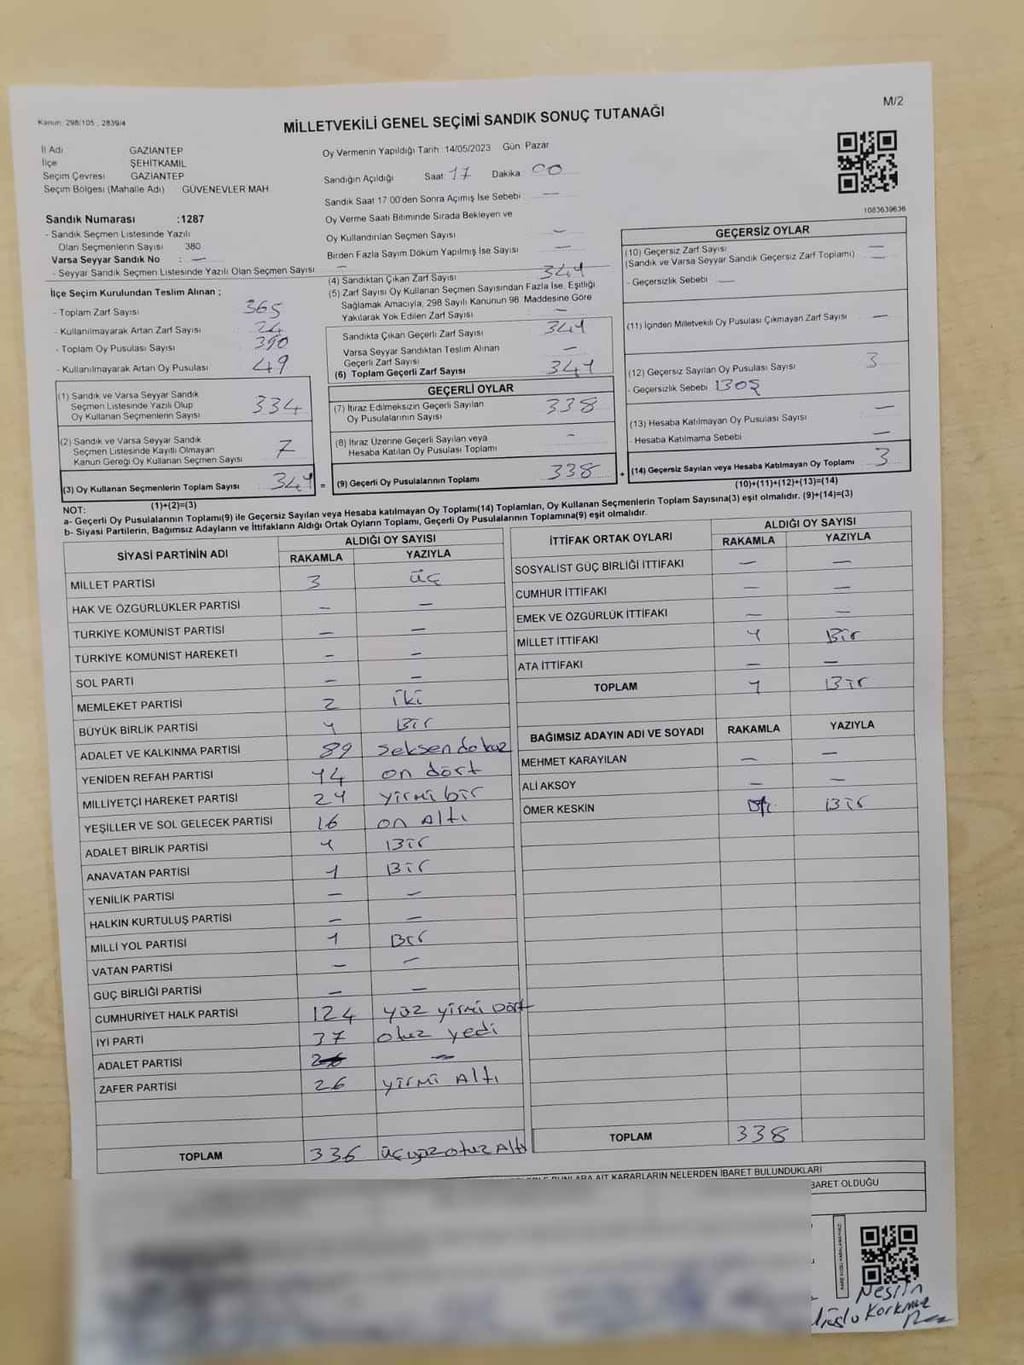 Kanun: 298/105 , 2839/4
M/2
MİLLETVEKİLİ GENEL SEÇİMİ SANDIK SONUÇ TUTANAĞI
İl Adı GAZİANTEP
İlçe ŞEHİTKAMİL
Seçim Çevresi GAZİANTEP
Seçim Bölgesi (Mahalle Adı) GÜVENEVLER MAH.
Sandık Numarası :1287
- Sandık Seçmen Listesinde Yazılı
Olan Seçmenlerin Sayısı 380
Varsa Seyyar Sandık No : —
- Seyyar Sandık Seçmen Listesinde Yazılı Olan Seçmen Sayısı —
Oy Vermenin Yapıldığı Tarih :14/05/2023 Gün: Pazar
Sandığın Açıldığı Saat 17 Dakika 00
Sandık Saat 17:00'den Sonra Açılmış İse Sebebi —
Oy Verme Saati Bitiminde Sırada Bekleyen ve
Oy Kullandırılan Seçmen Sayısı —
Birden Fazla Sayım Döküm Yapılmış İse Sayısı —
1083639636
İlçe Seçim Kurulundan Teslim Alınan ;
- Toplam Zarf Sayısı 365
- Kullanılmayarak Artan Zarf Sayısı 24
- Toplam Oy Pusulası Sayısı 390
- Kullanılmayarak Artan Oy Pusulası 49
(1) Sandık ve Varsa Seyyar Sandık
Seçmen Listesinde Yazılı Olup
Oy Kullanan Seçmenlerin Sayısı 334
(2) Sandık ve Varsa Seyyar Sandık
Seçmen Listesinde Kayıtlı Olmayan
Kanun Gereği Oy Kullanan Seçmen Sayısı 7
(3) Oy Kullanan Seçmenlerin Toplam Sayısı 341 =
(1)+(2)=(3)
(4) Sandıktan Çıkan Zarf Sayısı 341
(5) Zarf Sayısı Oy Kullanan Seçmen Sayısından Fazla İse, Eşitliği
Sağlamak Amacıyla, 298 Sayılı Kanunun 98. Maddesine Göre
Yakılarak Yok Edilen Zarf Sayısı —
Sandıkta Çıkan Geçerli Zarf Sayısı 341
Varsa Seyyar Sandıktan Teslim Alınan
Geçerli Zarf Sayısı —
(6) Toplam Geçerli Zarf Sayısı 341
GEÇERLİ OYLAR
(7) İtiraz Edilmeksizin Geçerli Sayılan
Oy Pusulalarının Sayısı 338
(8) İtiraz Üzerine Geçerli Sayılan veya
Hesaba Katılan Oy Pusulası Toplamı —
(9) Geçerli Oy Pusulalarının Toplamı 338 +
GEÇERSİZ OYLAR
(10) Geçersiz Zarf Sayısı —
(Sandık ve Varsa Seyyar Sandık Geçersiz Zarf Toplamı) —
- Geçersizlik Sebebi —
(11) İçinden Milletvekili Oy Pusulası Çıkmayan Zarf Sayısı —
(12) Geçersiz Sayılan Oy Pusulası Sayısı 3
- Geçersizlik Sebebi BOŞ
(13) Hesaba Katılmayan Oy Pusulası Sayısı —
- Hesaba Katılmama Sebebi —
(14) Geçersiz Sayılan veya Hesaba Katılmayan Oy Toplamı 3
(10)+(11)+(12)+(13)=(14)
NOT:
a- Geçerli Oy Pusulalarının Toplamı(9) ile Geçersiz Sayılan veya Hesaba katılmayan Oy Toplamı(14) Toplamları, Oy Kullanan Seçmenlerin Toplam Sayısına(3) eşit olmalıdır. (9)+(14)=(3)
b- Siyasi Partilerin, Bağımsız Adayların ve İttifakların Aldığı Ortak Oyların Toplamı, Geçerli Oy Pusulalarının Toplamına(9) eşit olmalıdır.
SİYASİ PARTİNİN ADI ALDIĞI OY SAYISI
RAKAMLA YAZIYLA
MİLLET PARTİSİ 3 üç
HAK VE ÖZGÜRLÜKLER PARTİSİ — —
TÜRKİYE KOMÜNİST PARTİSİ — —
TÜRKİYE KOMÜNİST HAREKETİ — —
SOL PARTİ — —
MEMLEKET PARTİSİ 2 iki
BÜYÜK BİRLİK PARTİSİ 1 Bir
ADALET VE KALKINMA PARTİSİ 89 seksen dokuz
YENİDEN REFAH PARTİSİ 14 on dört
MİLLİYETÇİ HAREKET PARTİSİ 21 yirmi bir
YEŞİLLER VE SOL GELECEK PARTİSİ 16 on altı
ADALET BİRLİK PARTİSİ 1 Bir
ANAVATAN PARTİSİ 1 Bir
YENİLİK PARTİSİ — —
HALKIN KURTULUŞ PARTİSİ — —
MİLLİ YOL PARTİSİ 1 Bir
VATAN PARTİSİ — —
GÜÇ BİRLİĞİ PARTİSİ — —
CUMHURİYET HALK PARTİSİ 124 yüz yirmi Dört
İYİ PARTİ 37 otuz yedi
ADALET PARTİSİ —
ZAFER PARTİSİ 26 yirmi altı
TOPLAM 336 üçyüz otuz altı
İTTİFAK ORTAK OYLARI ALDIĞI OY SAYISI
RAKAMLA YAZIYLA
SOSYALİST GÜÇ BİRLİĞİ İTTİFAKI — —
CUMHUR İTTİFAKI — —
EMEK VE ÖZGÜRLÜK İTTİFAKI — —
MİLLET İTTİFAKI 1 Bir
ATA İTTİFAKI — —
TOPLAM 1 Bir
BAĞIMSIZ ADAYIN ADI VE SOYADI RAKAMLA YAZIYLA
MEHMET KARAYILAN — —
ALİ AKSOY — —
ÖMER KESKİN Bir
TOPLAM 338
BUNLARA AİT KARARLARIN NELERDEN İBARET BULUNDUKLARI
İBARET OLDUĞU
Nesrin
Korkmaz